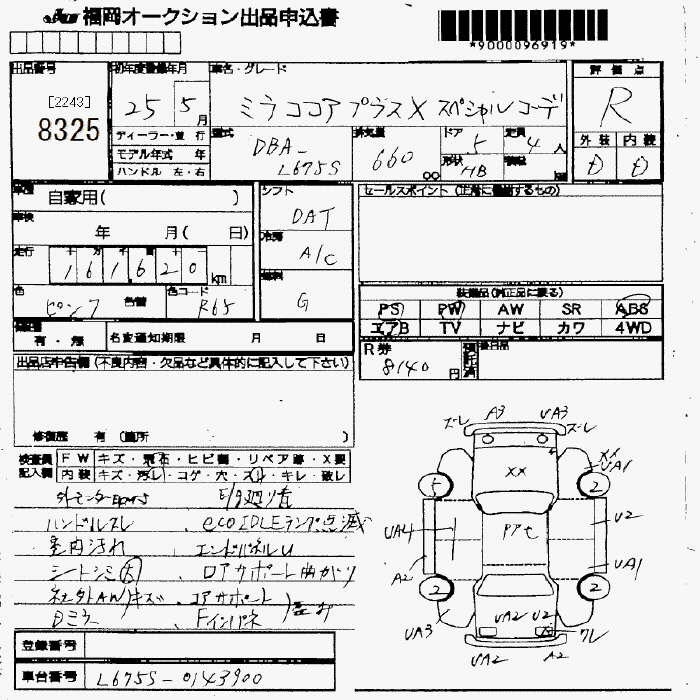 福岡オークション出品申込書
*9000096919*
出品番号
[2243]
8325
初年度登録年月
25 5月
ディーラー・並行
モデル年式 年
ハンドル 左・右
車名・グレード
ミラココアプラスX スペシャルコーデ
型式
DBA-
L675S
排気量
660
ドア
5
形状
HB
定員
4人
評価点
R
外装 内装
D D
車歴
自家用( )
車検
年 月( 日)
走行
161620 km
色
ピンク
色替
色コード
R65
シフト
DAT
冷房
A/C
燃料
G
セールスポイント
装備品(純正品に限る)
PS PW AW SR ABS
エアB TV ナビ カワ 4WD
有・無
名変通知期限 月 日
R券
8140円
後日品
出品店申告欄(不良内容・欠品など具体的に記入して下さい)
修復歴 有 (箇所
検査員
記入欄
FW キズ・飛石・ヒビ割・リペア跡・X要
内装 キズ・汚レ・コゲ・穴・スレ・キレ・破レ
ハンドルスレ、eco IDLEランプ点滅
室内汚れ、エンドパネルU
シートシミ大、ロアサポート曲がり
コアサポート
Dミラー
Fインパネ
ズレ A3 UA3 ズレ
XX
UA1
XX
5 2
U2
UA4
アアセ
A2
UA1
2 2
UA3
UA2 U2
ワレ
UA2 A2
登録番号
車台番号 L675S-0143900